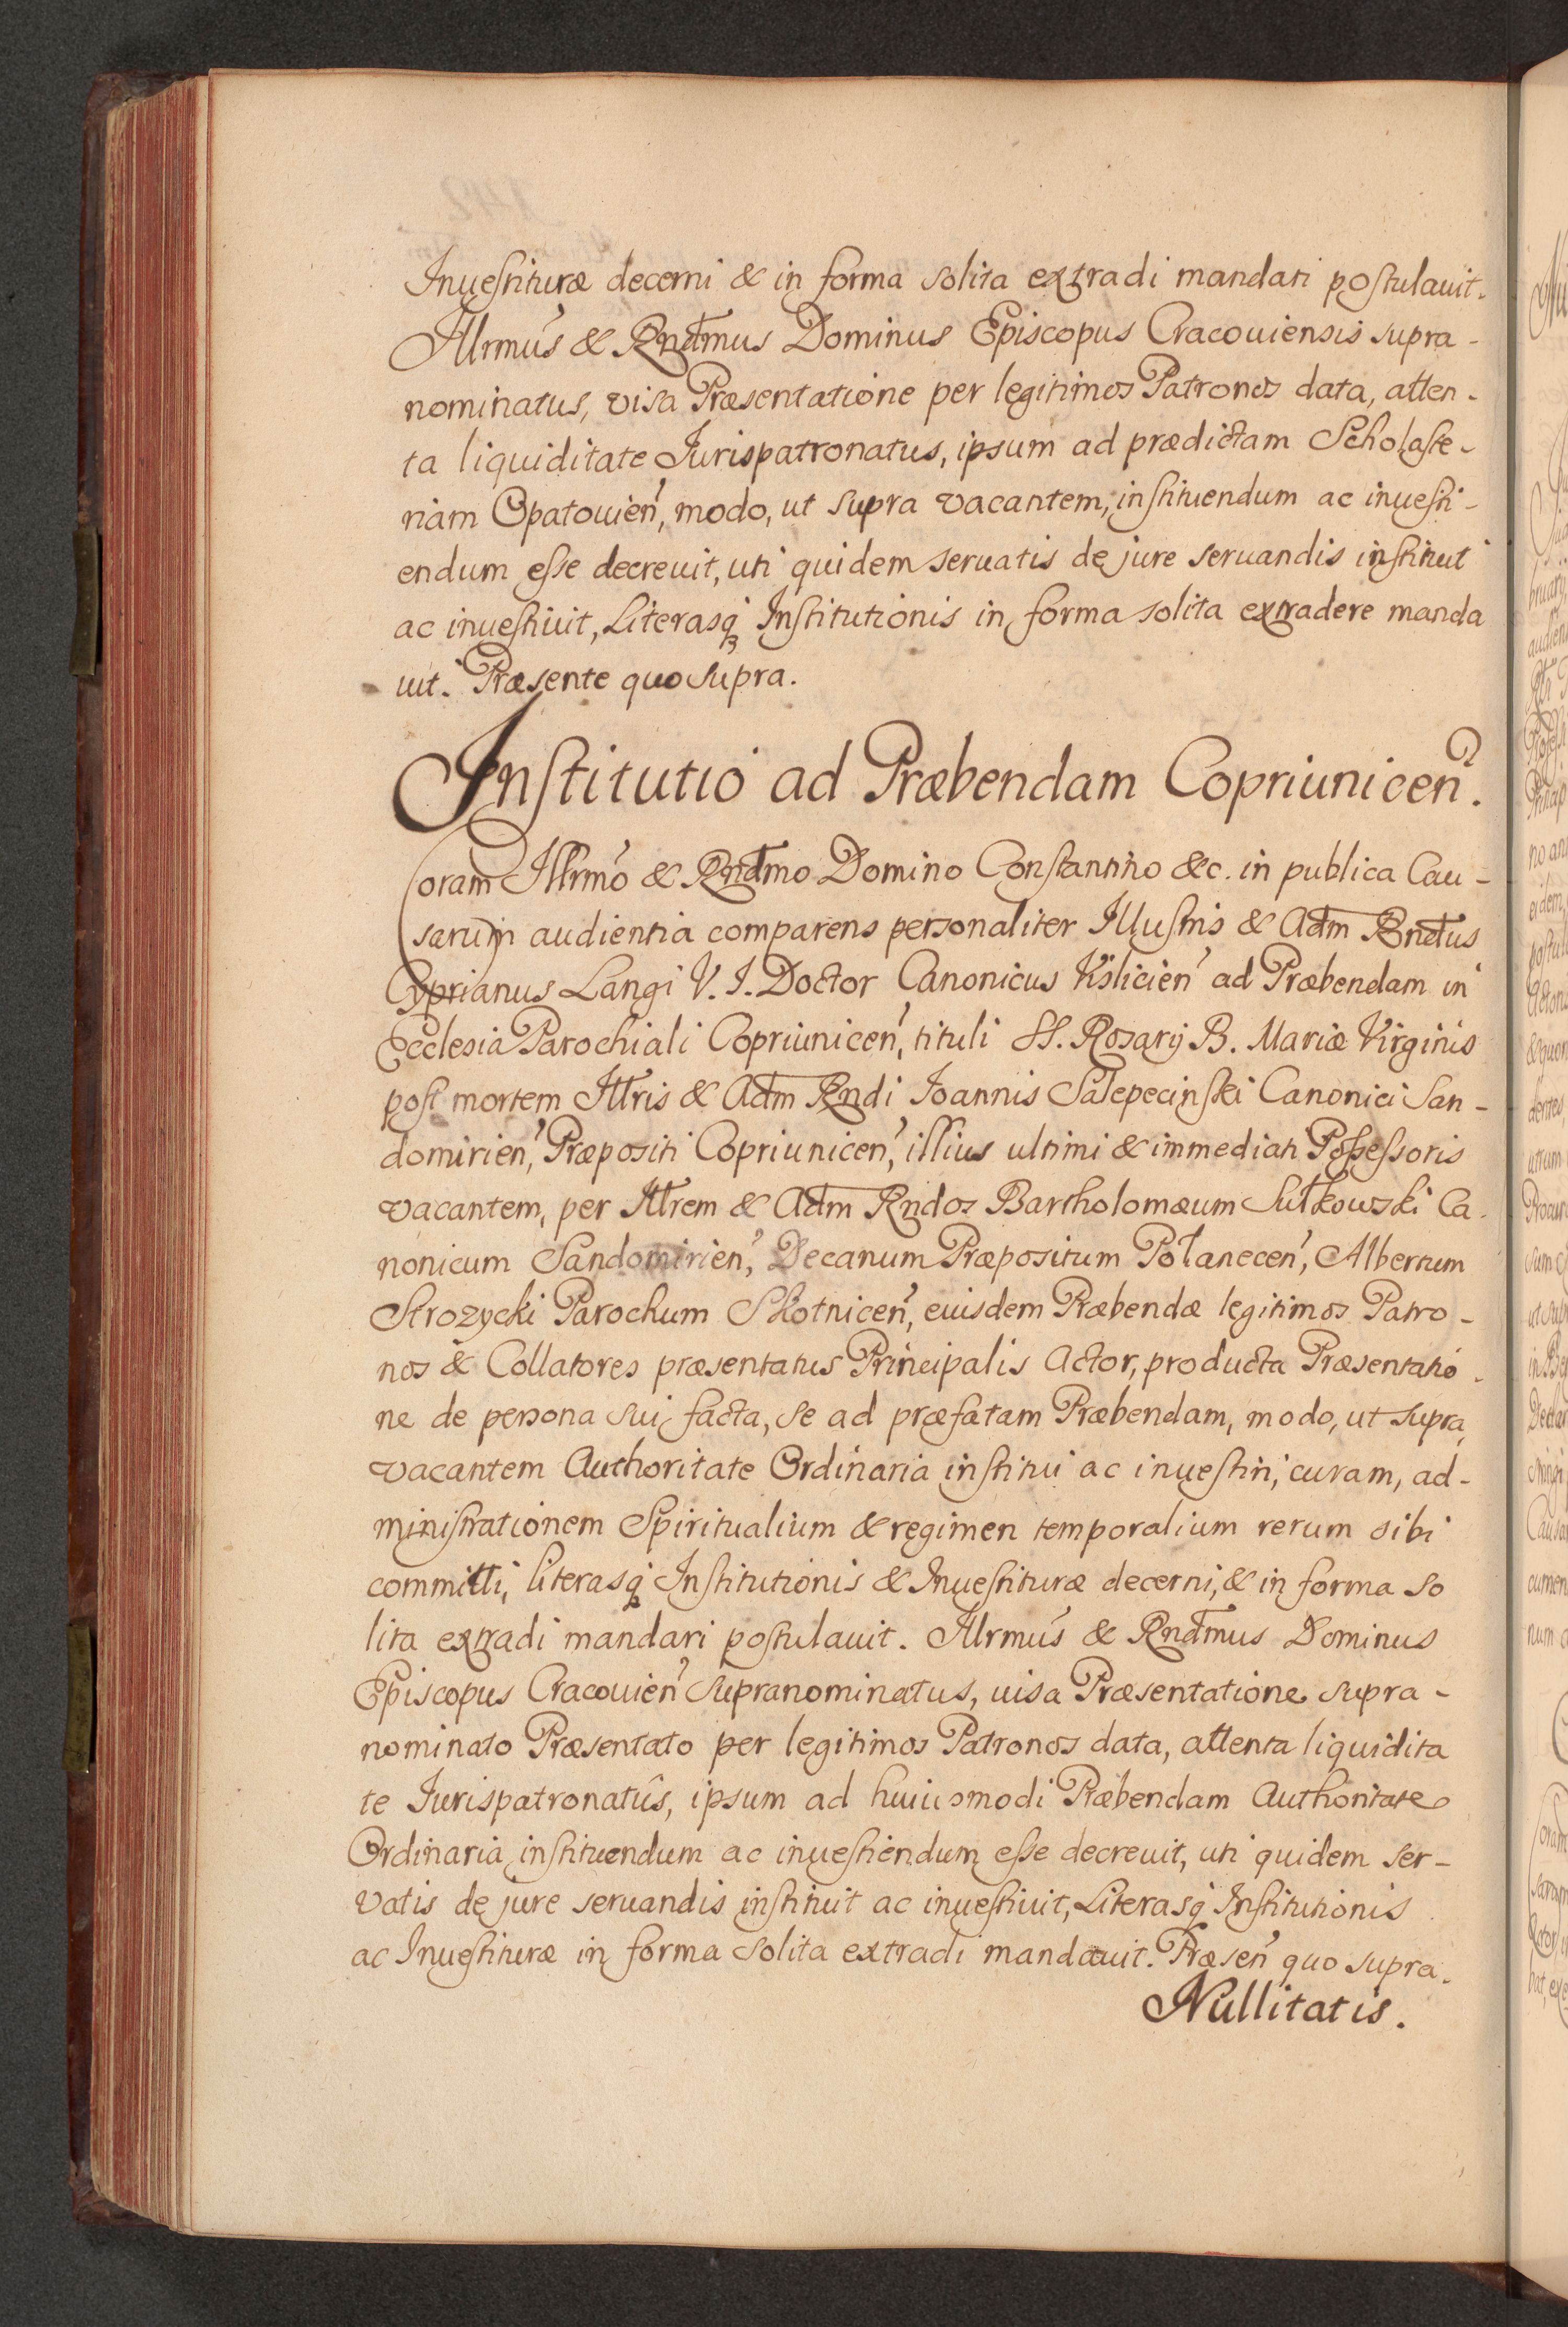 Inuestituræ decerni & in forma solita extradi mandari postulauit.
Illrmus & Rndmus Dominus Episcopus Cracouiensis supra-
nominatus, visa Præsentatione per legitimos Patronos data, atten-
ta liquiditate Jurispatronatus, ipsum ad prædictam Scholaste-
riam Opatouien, modo, ut supra vacantem, instituendum ac inuesti-
endum esse decreuit, uti quidem seruatis de jure seruandis instituit
ac inuestiuit, Literasq Institutionis in forma solita extradere manda
uit. Præsente quo supra.
Institutio ad Præbendam Copriunicen.
Coram Illrmo & Rndmo Domino Constantino &c. in publica Cau-
sarum audientia comparens personaliter Illustris & Adm Rndus
Cyprianus Langi V. I. Doctor Canonicus Kilicien ad Præbendam in
Ecclesia Parochiali Copriunicen, tituli SS. Rosarij B. Mariæ Virginis
post mortem Illris & Adm Rndi Ioannis Salepecinski Canonici San-
domirien, Præpositi Copriunicen, illius ultimi & immediati Possessoris
vacantem, per Illrem & Adm Rndos Bartholomæum Sułkowski Ca-
nonicum Sandomirien, Decanum Præpositum Połanecen, Albertum
Strozycki Parochum Skotnicen, euisdem Præbendæ legitimos Patro-
nos & Collatores præsentatus Principalis Actor, producta Præsentatio-
ne de persona sui facta, se ad præfatam Præbendam, modo, ut supra,
vacantem Authoritate Ordinaria institui ac inuestiri, curam, ad-
ministrationem Spiritualium & regimen temporalium rerum sibi
committi, literasq Institutionis & Inuestituræ decerni, & in forma so
lita extradi mandari postulauit. Illrmus & Rndmus Dominus
Episcopus Cracouien supranominatus, uisa Præsentatione supra-
nominato Præsentato per legitimos Patronos data, attenta liquidita
te Iurispatronatûs, ipsum ad huiusmodi Præbendam Authoritate
Ordinaria instituendum ac inuestiendum esse decreuit, uti quidem ser-
vatis de jure seruandis instituit ac inuestiuit, Literasq Institutionis
ac Inuestituræ in forma solita extradi mandauit. Præsen quo supra.
Nullitatis.